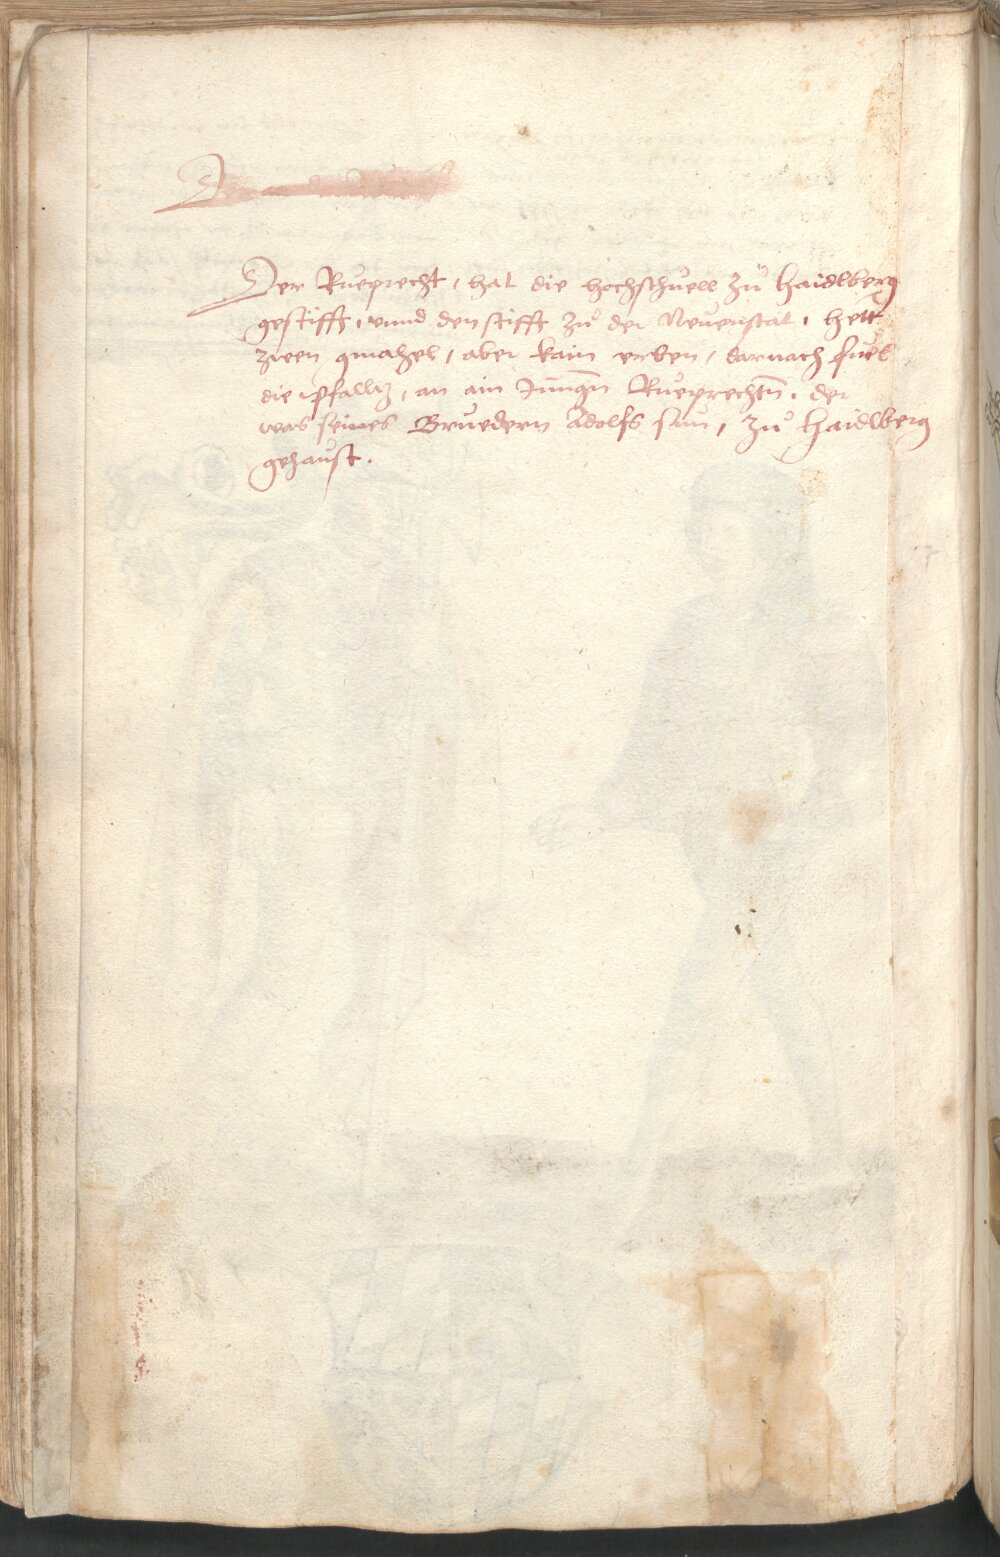 Der Rueprecht, hat die hochschuell zů Haidlberg
gestifft, vnnd den stifft zů der Neuenstat, hett
zwen gmahel, aber kain erben, darnach fuel
die pfalltz, an ain Jungn̄ Rueprechtn̄, der
was seines Bruedern Adolfs sun, zů Haidlberg
gehaust.